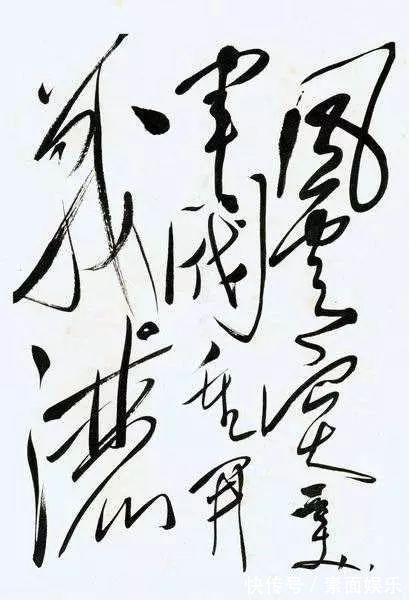 風雲突變
軍閥重開
戰灑
快传号 / 素面娱乐